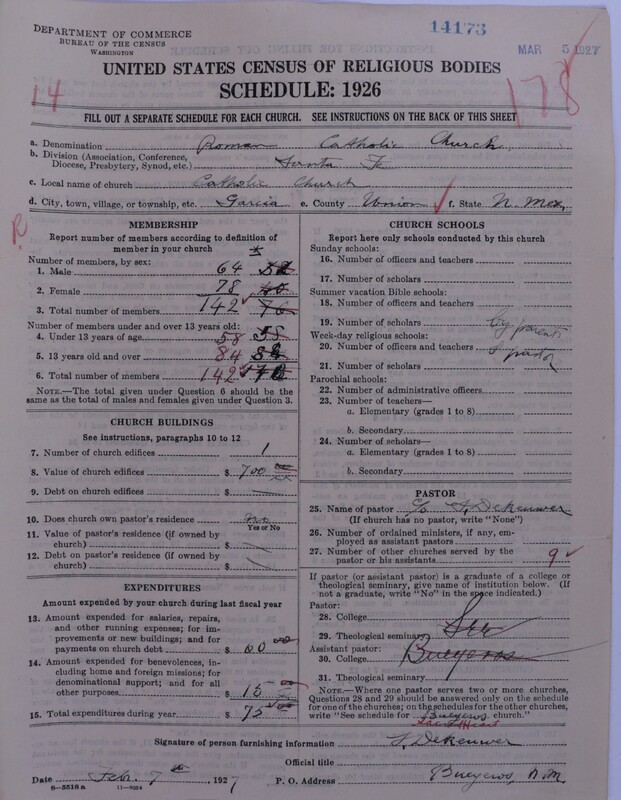 DEPARTMENT OF COMMERCE
BUREAU OF THE CENSUS
WASHINGTON
14173
MAR 5 1927
UNITED STATES CENSUS OF RELIGIOUS BODIES
SCHEDULE: 1926
14
178
FILL OUT A SEPARATE SCHEDULE FOR EACH CHURCH. SEE INSTRUCTIONS ON THE BACK OF THIS SHEET
a. Denomination Roman Catholic Church
b. Division (Association, Conference, Diocese, Presbytery, Synod, etc.) Santa Fe
c. Local name of church Catholic Church
d. City, town, village, or township, etc. Garcia e. County Union f. State N. Mex.
R
MEMBERSHIP
Report number of members according to definition of
member in your church
Number of members, by sex:
1. Male 64
2. Female 78
3. Total number of members 142
Number of members under and over 13 years old:
4. Under 13 years of age 58
5. 13 years old and over 84
6. Total number of members 142
NOTE.—The total given under Question 6 should be
same as the total of males and females given under Question 3.
CHURCH BUILDINGS
See instructions, paragraphs 10 to 12
7. Number of church edifices 1
8. Value of church edifices $ 700
9. Debt on church edifices $
10. Does church own pastor's residence no
Yes or No
11. Value of pastor's residence (if owned by
church) $
12. Debt on pastor's residence (if owned by
church) $
EXPENDITURES
Amount expended by your church during last fiscal year
13. Amount expended for salaries, repairs,
and other running expenses; for im-
provements or new buildings; and for
payments on church debt $ 60 00
14. Amount expended for benevolences, in-
cluding home and foreign missions; for
denominational support; and for all
other purposes $ 15
15. Total expenditures during year $ 75 00
CHURCH SCHOOLS
Report here only schools conducted by this church
Sunday schools:
16. Number of officers and teachers
17. Number of scholars
Summer vacation Bible schools:
18. Number of officers and teachers
19. Number of scholars by parents
Week-day religious schools:
20. Number of officers and teachers & pastor
21. Number of scholars
Parochial schools:
22. Number of administrative officers
23. Number of teachers—
a. Elementary (grades 1 to 8)
b. Secondary
24. Number of scholars—
a. Elementary (grades 1 to 8)
b. Secondary
PASTOR
25. Name of pastor c/o J. Dekeuwer
(If church has no pastor, write "None")
26. Number of ordained ministers, if any, em-
ployed as assistant pastors
27. Number of other churches served by the
pastor or his assistants 9
If pastor (or assistant pastor) is a graduate of a college or
theological seminary, give name of institution below. (If
not a graduate, write "No" in the space indicated.)
Pastor:
28. College
29. Theological seminary See
Assistant pastor:
30. College Bueyeros
31. Theological seminary
NOTE.—Where one pastor serves two or more churches,
Questions 28 and 29 should be answered only on the schedule
for one of the churches; on the schedules for the other churches,
write "See schedule for Bueyeros church."
Sacred Heart
Signature of person furnishing information J. Dekeuwer
Official title
Date Feb. 7th, 1927 P. O. Address Bueyeros, N. M.
6—5518a 11—9024